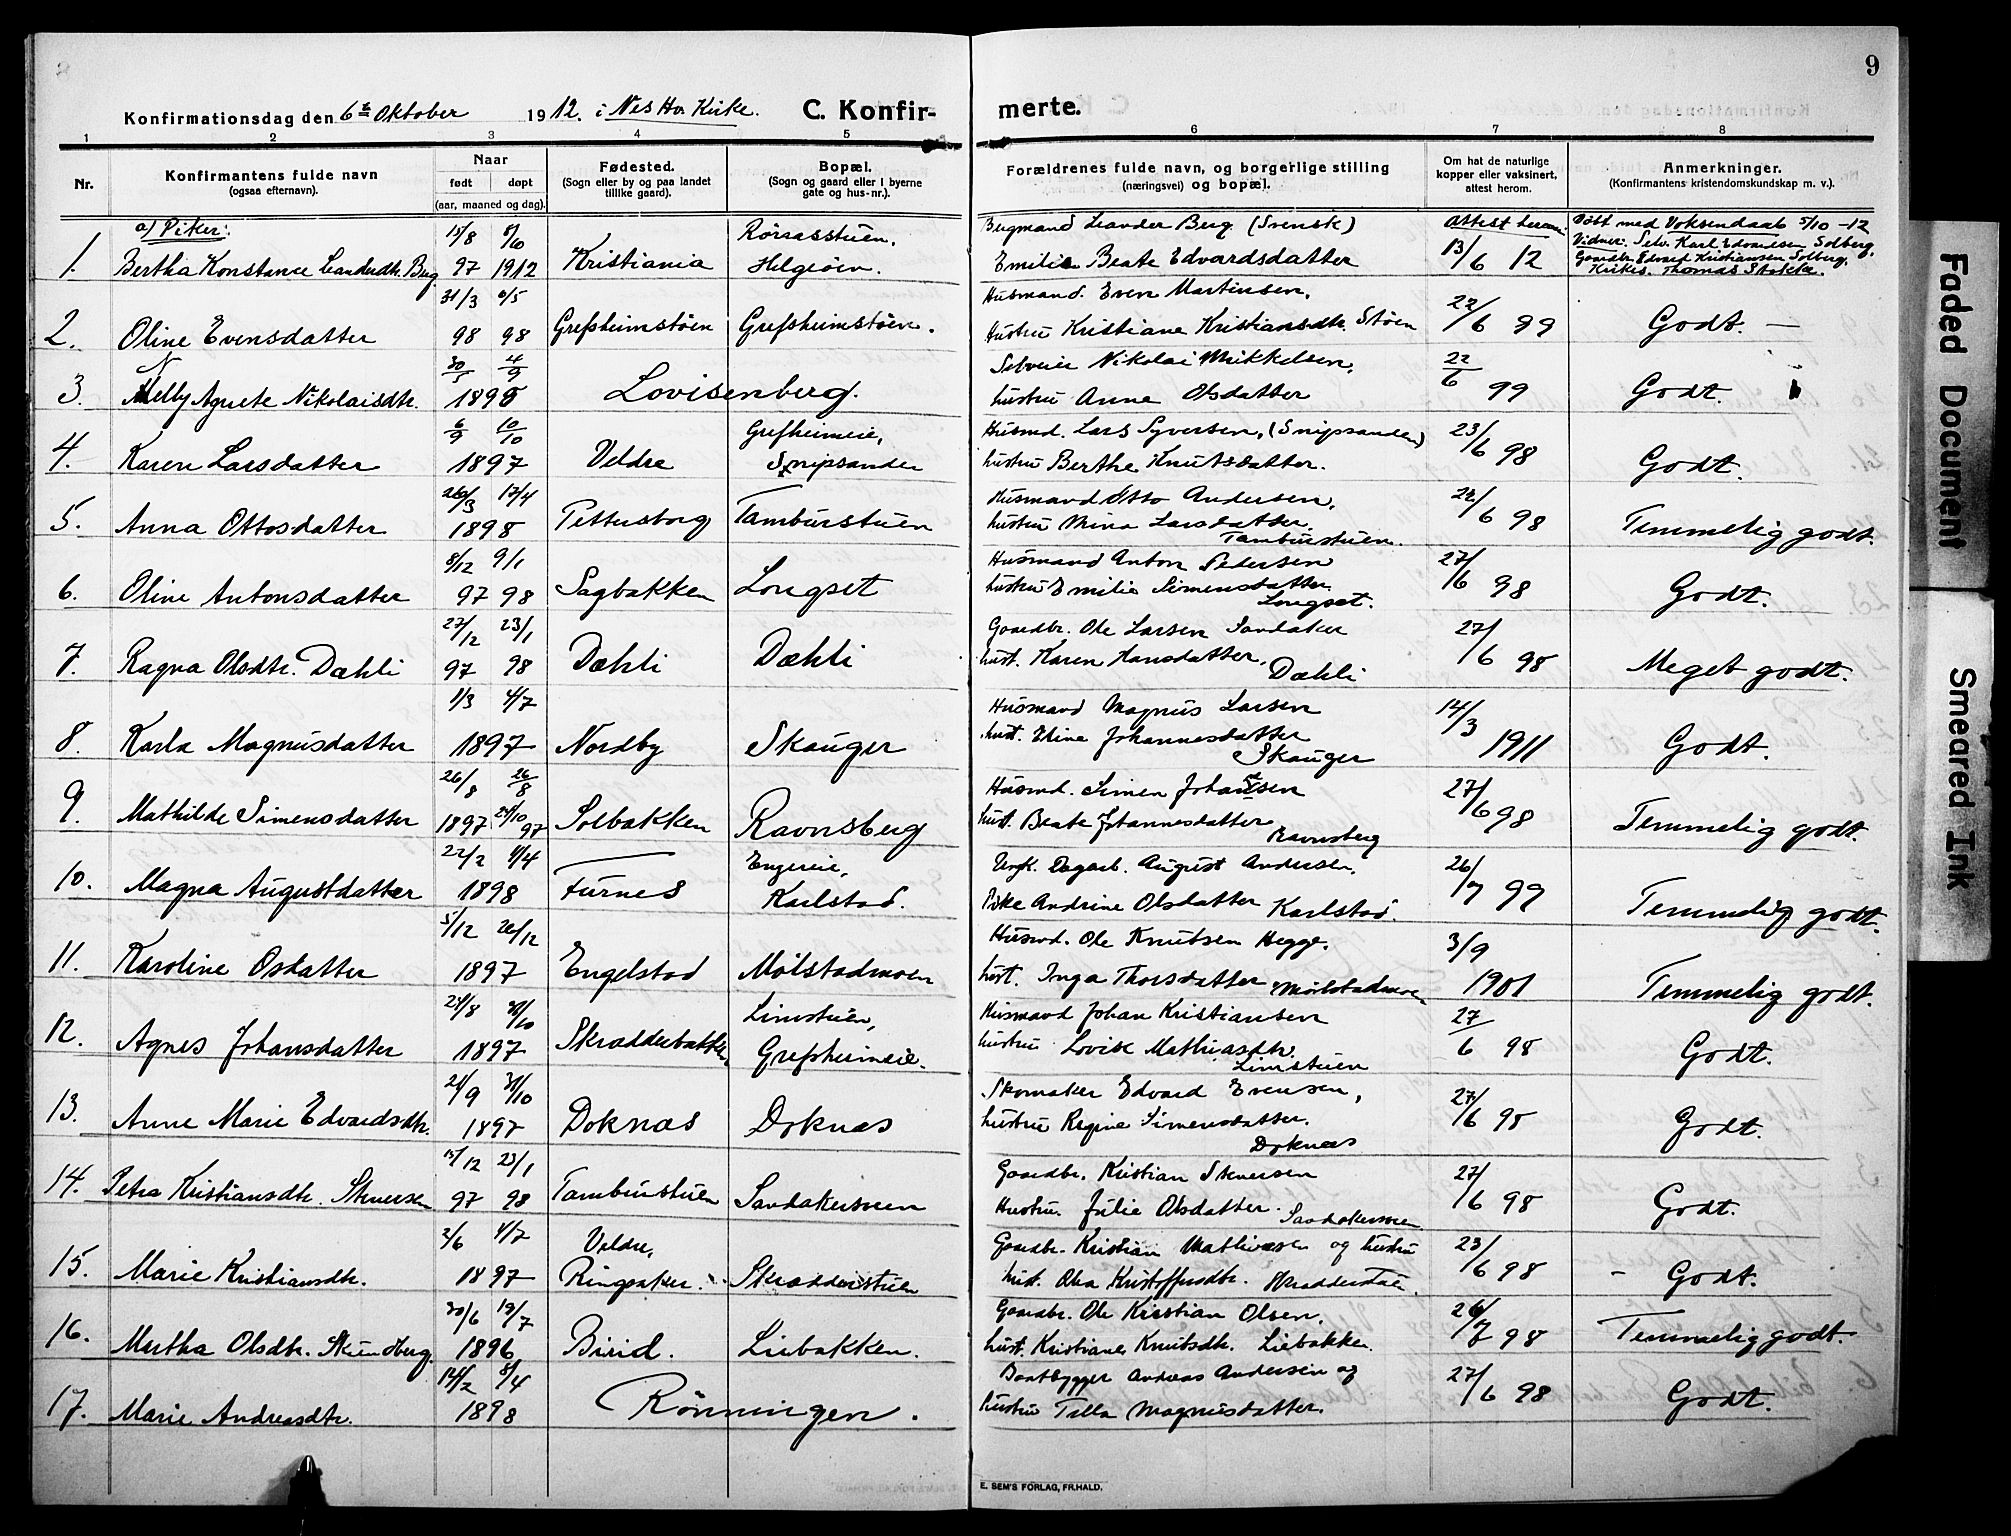 9
Konfirmationsdag den 6te Oktober 1912. i Nes Ho. Kirke. C. Konfirmerte.
1 2 3 4 5 6 7 8
Nr.
Konfirmantens fulde navn
(ogsaa efternavn).
Naar
født døpt
(aar, maaned og dag).
Fødested.
(Sogn eller by og paa landet
tillike gaard).
Bopæl.
(Sogn og gaard eller i byerne
gate og hus-nr.).
Forældrenes fulde navn, og borgerlige stilling
(næringsvei) og bopæl.
Om hat de naturlige
kopper eller vaksinert,
attest herom.
Anmerkninger.
(Konfirmantens kristendomskundskap m. v.).
a) Piker: 15/8 5/10 Rørsasstuen. Bergmand Leander Berg (Svensk) Attest herom: Døbt med Voksendaab 5/10 -12
Vidner: Selv. Karl Edvardsen Solberg,
1. Bertha Konstance Leandersdtr. Berg 97 1912 Kristiania Helgøen. Emilie Beate Edvardsdatter 13/6 12 Gaardbr. Edvard Kristiansen Solberg,
Kirkes. Thomas Stokke.
31/3 5 Husmand. Even Martinsen, 22/6 99
2. Oline Evensdatter 98 98 Grefsheimstøen Grefsheimstøen. Hustru Kristiane Kristiansdtr. Støen Godt. —
30/5 4/9 Selveier Nikolai Mikkelsen, 22/6 99
3. Nelly Agnete Nikolaisdtr. 1898 Lovisenberg. hustru Anne Olsdatter Godt.
6/9 10/10 Grefsheimeie, Husmd. Lars Syversen, (Snipsanden) 23/6 98
4. Karen Larsdatter 1897 Veldre Snipsanden hustru Berthe Knutsdatter. Godt.
26/3 17/4 Husmand Otto Andersen, 22/6 98
5. Anna Ottosdatter 1898 Pettersborg Tamburstuen hustru Mina Larsdatter. Temmelig godt.
Tamburstuen.
8/12 9/1 Husmand Anton Pedersen 27/6 98
6. Oline Antonsdatter 97 98 Sagbakken Longset hustru Emilie Simensdatter Godt.
Longset.
27/12 23/1 Gaardbr. Ole Larsen Sandaker 27/6 98
7. Ragna Olsdtr. Dæhli 97 98 Dæhli Dæhli hust. Karen Hansdatter, Meget godt.
Dæhli
1/3 4/7 Husmand Magnus Larsen 14/3 1911
8. Karla Magnusdatter 1897 Nordby Skauger hust. Eline Johannesdatter Godt.
Skauger
26/8 26/8 Husmd. Simen Johansen 27/6 98
9. Mathilde Simensdatter 1897 24/10 97 Solbakken Ravnsberg hust. Beate Johannesdatter Temmelig godt.
Ravnsberg
22/2 4/4 Engereie, Ungk. Dagarb. August Andersen. 26/7 99
10. Magna Augustdatter 1898 Furnes Karlstad. Pike Andrine Olsdatter Karlstad Temmelig godt.
5/12 26/12 Husmd. Ole Knutsen Hegge. 3/9 1901
11. Karoline Osdatter 1897 Engelstad Mølstadmoen hust. Inga Thorsdatter Mølstadmoen Temmelig godt.
29/8 31/10 Linstuen, Husmand Johan Kristiansen 27/6 98
12. Agnes Johansdatter 1897 Skrædderbakken Grefsheimeie. hustru Lovise Mathiasdtr. Godt.
Linstuen
21/9 31/10 Skomaker Edvard Evensen, 27/6 98
13. Anne Marie Edvardsdtr. 1897 Doknæs Doknæs hustru Regine Simensdatter. Godt.
Doknæs
15/12 23/1 Gaardbr. Kristian Skversen 27/6 98
14. Petra Kristiansdtr. Skversen 97 98 Tamburstuen Sandakersveen Hustru. Julie Olsdatter. Sandakersveen Godt.
2/6 4/7 Veldre, Gaardbr. Kristian Mathisen og hustru 23/6 98
15. Marie Kristiansdtr. 1897 Ringsaker. Skrædderstuen hust. Olea Kristoffersdtr. Skrædderstuen. - Godt.
20/6 19/7 Gaardbr. Ole Kristian Olsen, 26/7 98
16. Martha Olsdtr. 1896 Birid. Liebakken. hust. Kristiane Knutsdtr. Liebakken. Temmelig godt.
14/2 8/4 Baatbygger Andreas Andersen og 27/6 98
17. Marie Andreasdtr. 1898 Rønningen. hustru Tella Magnusdatter. Godt.
E. SEM'S FORLAG, FR.HALD.
Faded Document
Smeared Ink